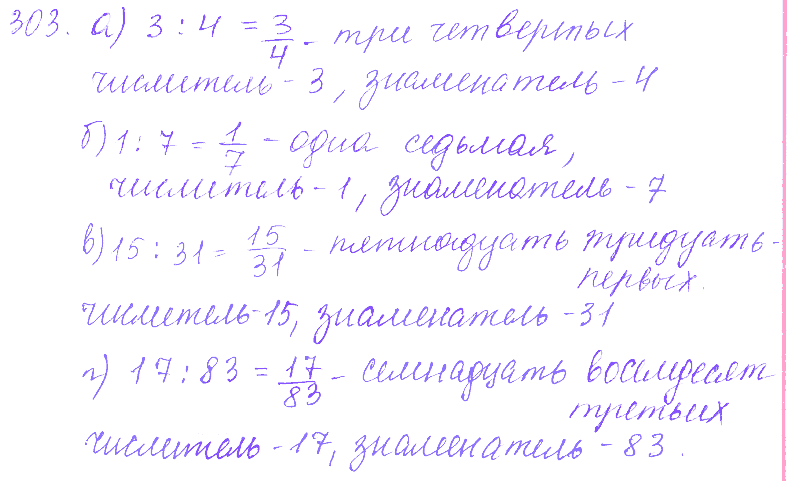 303. а) 3 : 4 = 3/4 - три четвертых
числитель - 3, знаменатель - 4
б) 1 : 7 = 1/7 - одна седьмая,
числитель - 1, знаменатель - 7
в) 15 : 31 = 15/31 - пятнадцать тридцать-
первых.
числитель - 15, знаменатель - 31
г) 17 : 83 = 17/83 - семнадцать восемьдесят
третьих
числитель - 17, знаменатель - 83.